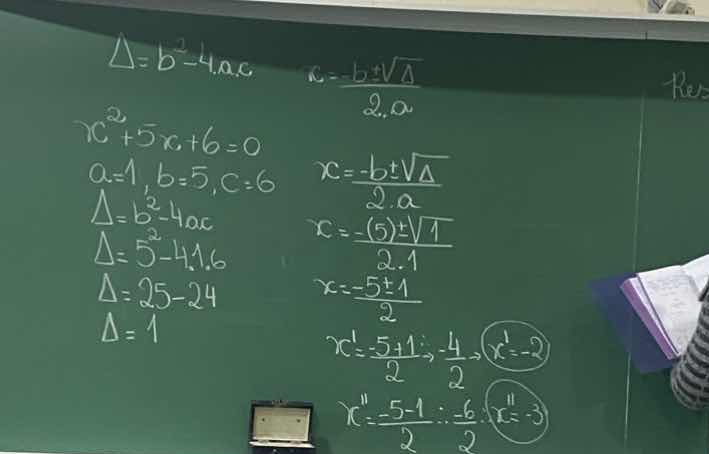 Δ = b² - 4.a.c
x = -b ± √Δ / 2.a
x² + 5x + 6 = 0
a = 1, b = 5, c = 6
Δ = b² - 4ac
Δ = 5² - 4.1.6
Δ = 25 - 24
Δ = 1
x = -b ± √Δ / 2.a
x = -(5) ± √1 / 2.1
x = -5 ± 1 / 2
x' = -5+1 / 2 ∴→ -4 / 2 → x' = -2
x'' = -5-1 / 2 ∴ -6 / 2 ∴ x'' = -3
Res